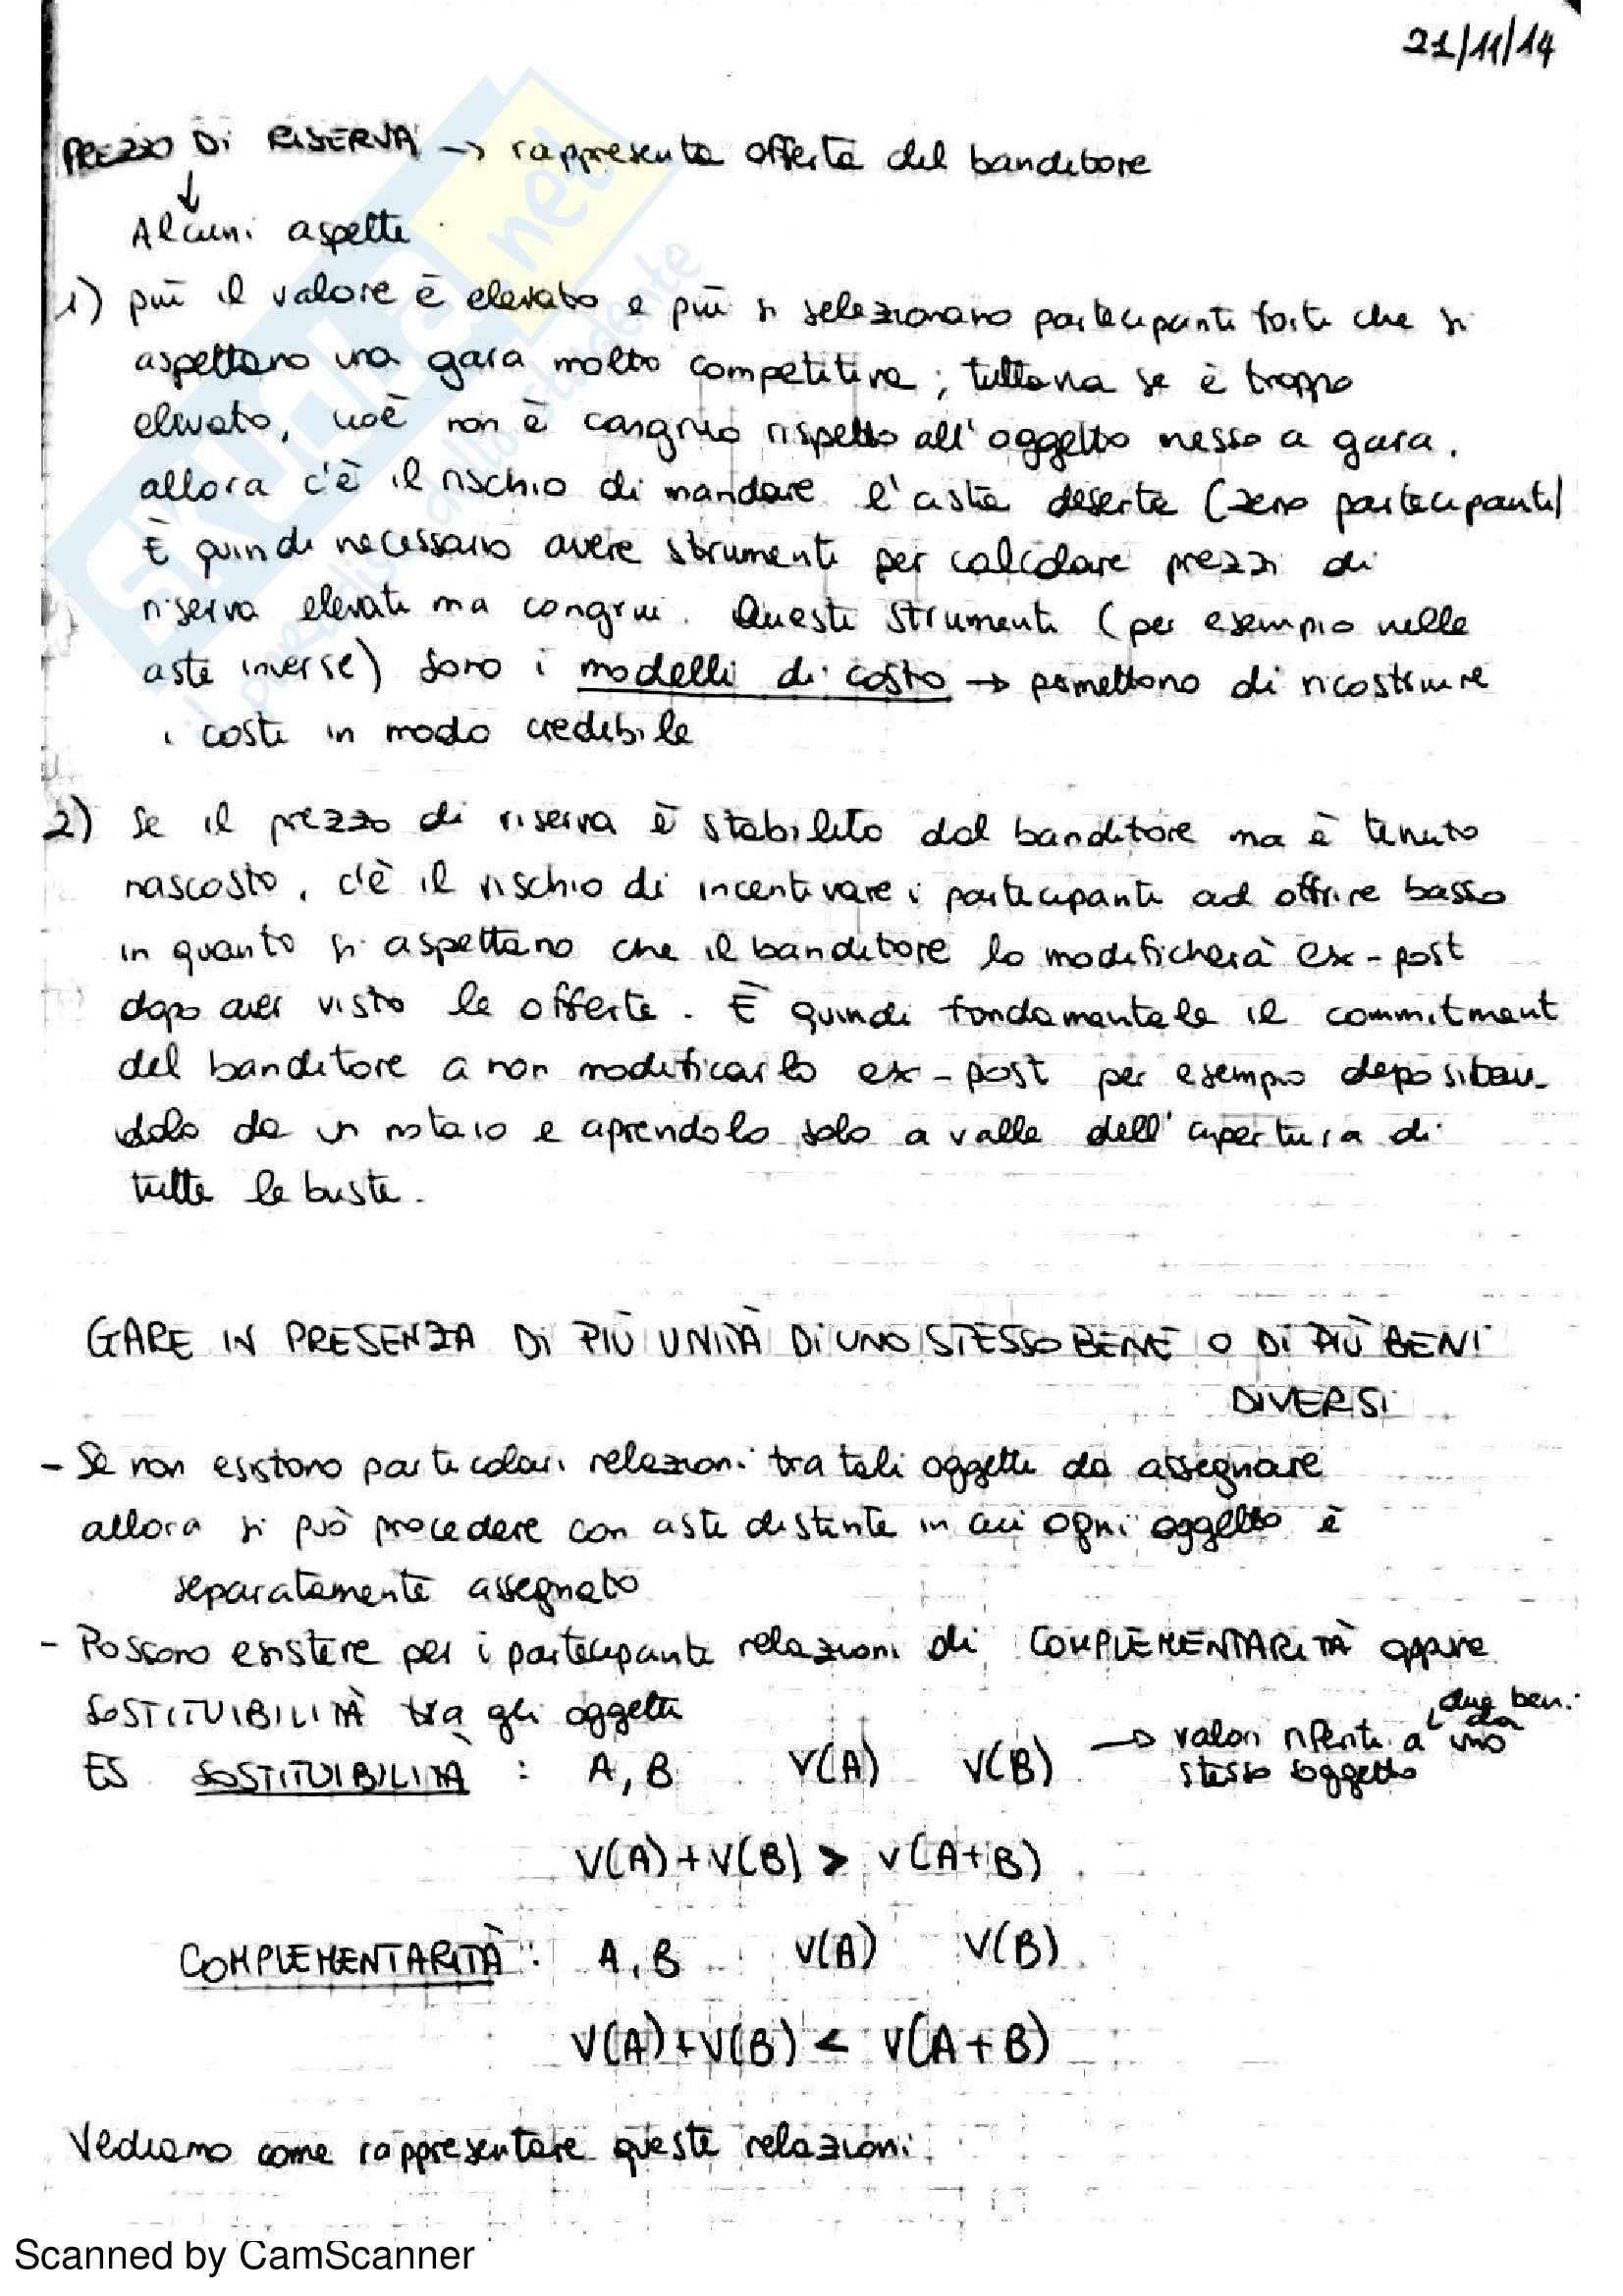 21/11/14
PREZZO DI RISERVA → rappresenta offerta del banditore
↓
Alcuni aspetti
1) più il valore è elevato e più si selezionano partecipanti forti che si
aspettano una gara molto competitiva; tuttavia se è troppo
elevato, cioè non è congruo rispetto all'oggetto messo a gara,
allora c'è il rischio di mandare l'asta deserta (zero partecipanti)
È quindi necessario avere strumenti per calcolare prezzi di
riserva elevati ma congrui. Questi strumenti (per esempio nelle
aste inverse) sono i modelli di costo → permettono di ricostruire
i costi in modo credibile
2) Se il prezzo di riserva è stabilito dal banditore ma è tenuto
nascosto, c'è il rischio di incentivare i partecipanti ad offrire basso
in quanto si aspettano che il banditore lo modificherà ex-post
dopo aver visto le offerte. È quindi fondamentale il commitment
del banditore a non modificarlo ex-post per esempio depositan-
dolo da un notaio e aprendolo solo a valle dell'apertura di
tutte le buste.
GARE IN PRESENZA DI PIÙ UNITÀ DI UNO STESSO BENE O DI PIÙ BENI
DIVERSI
- Se non esistono particolari relazioni tra tali oggetti da assegnare
allora si può procedere con aste distinte in cui ogni oggetto è
separatamente assegnato
- Possono esistere per i partecipanti relazioni di COMPLEMENTARITÀ oppure
SOSTITUIBILITÀ tra gli oggetti
ES SOSTITUIBILITÀ : A, B V(A) V(B) → valori riferiti a due beni da uno
stesso soggetto
V(A)+V(B) > V(A+B)
COMPLEMENTARITÀ : A, B V(A) V(B)
V(A)+V(B) < V(A+B)
Vediamo come rappresentare queste relazioni.
Scanned by CamScanner
skuola.net
il paradiso dello studente